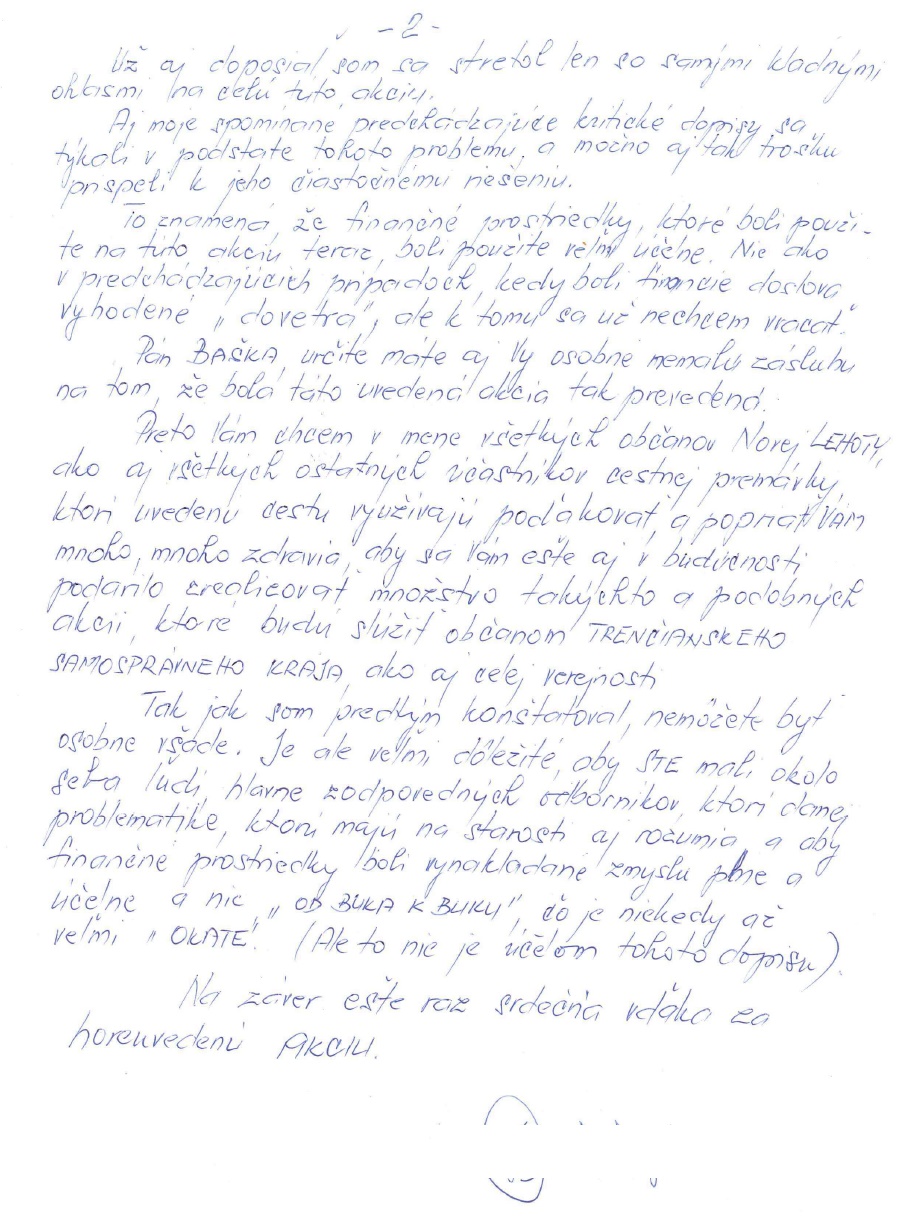 - 2 -
Už aj doposiaľ som sa stretol len so samými kladnými
ohlasmi na celú túto akciu.
Aj moje spomínané predchádzajúce kritické dopisy sa
týkali v podstate tohoto problému, a možno aj tak trošku
prispeli k jeho čiastočnému riešeniu.
To znamená, že finančné prostriedky, ktoré boli použi-
te na túto akciu teraz, boli použité veľmi účelne. Nie ako
v predchádzajúcich prípadoch, kedy boli financie doslova
vyhodené „dovetra", ale k tomu sa už nechcem vracať.
Pán BAŠKA, určite máte aj Vy osobne nemalú zásluhu
na tom, že bola táto uvedená akcia tak prevedená.
Preto Vám chcem v mene všetkých občanov Novej LEHOTY,
ako aj všetkých ostatných účastníkov cestnej premávky,
ktorí uvedenú cestu využívajú poďakovať, a popriať VÁM
mnoho, mnoho zdravia, aby sa Vám ešte aj v budúcnosti
podarilo zrealizovať množstvo takýchto a podobných
akcií, ktoré budú slúžiť občanom TRENČIANSKEHO
SAMOSPRÁVNEHO KRAJA, ako aj celej verejnosti
Tak jak som predtým konštatoval, nemôžete byť
osobne všade. Je ale veľmi dôležité, aby STE mali okolo
seba ľudí, hlavne zodpovedných odborníkov, ktorí danej
problematike, ktorú majú na starosti aj rozumia, a aby
finančné prostriedky boli vynakladané zmyslu plne a
účelne a nie „OD BUKA K BUKU", čo je niekedy až
veľmi „OKATÉ". (Ale to nie je účelom tohoto dopisu).
Na záver ešte raz srdečná vďaka za
horeuvedenú AKCIU.